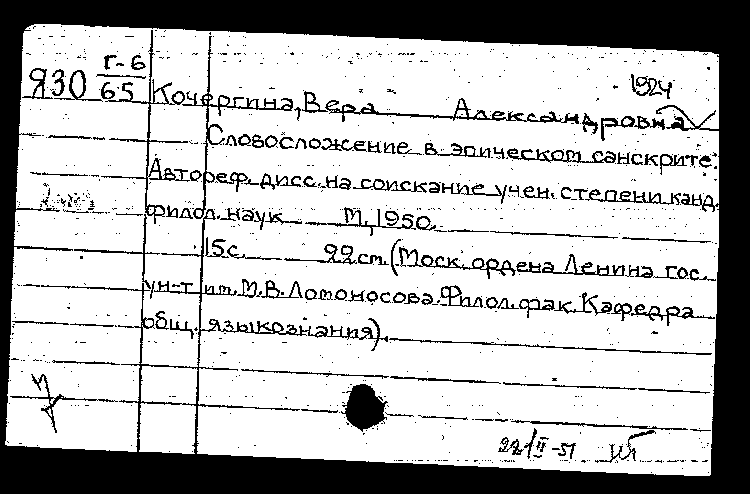 1924
Г-6
Я30 65
Кочергина, Вера Александровна
Словосложение в эпическом санскрите:
Автореф. дисс. на соискание учен. степени канд.
филол. наук М., 1950.
15с. 22см. (Моск. ордена Ленина гос.
ун-т им. М.В. Ломоносова. Филол. фак. Кафедра
общ. языкознания).
22/II-51